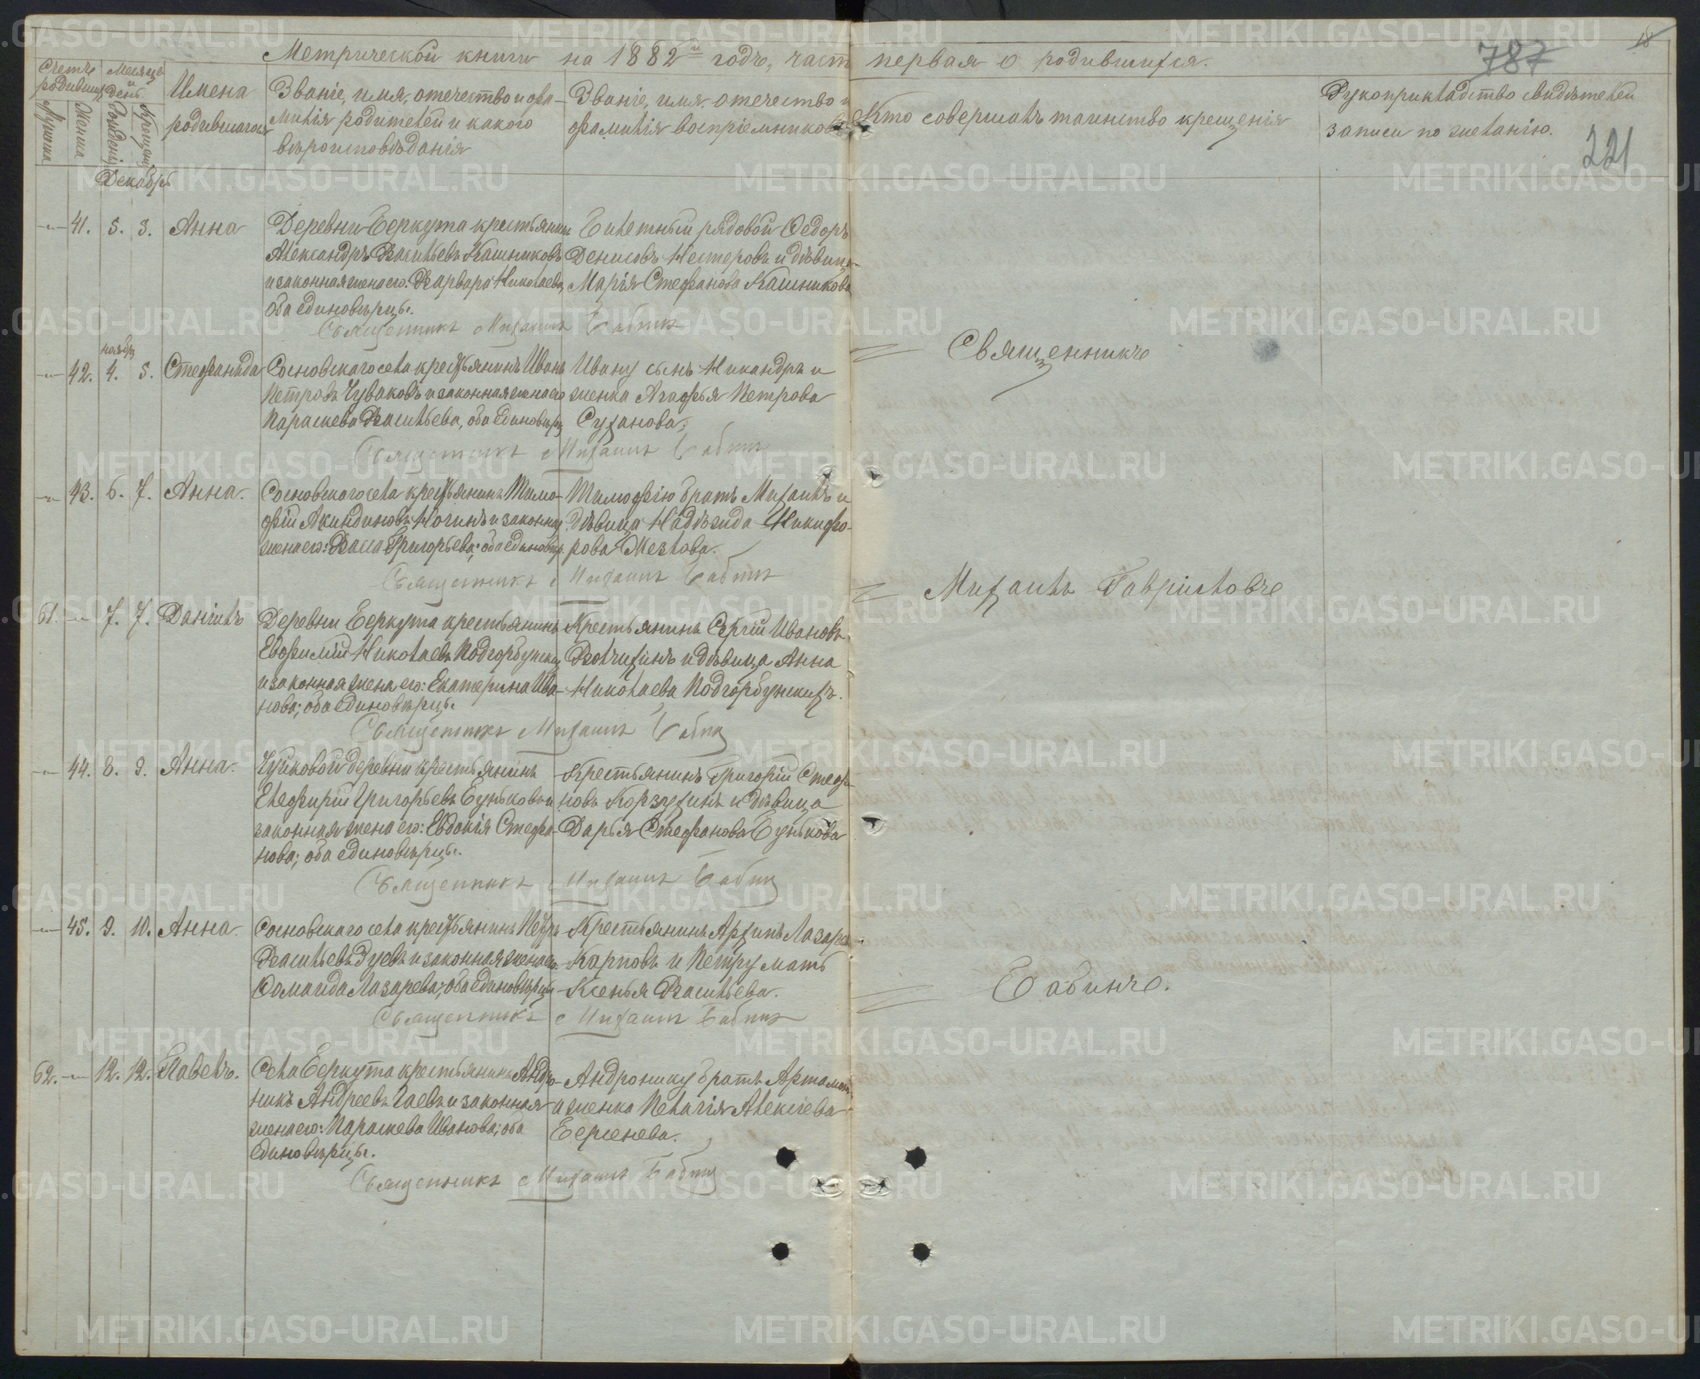 Метрической книги на 1882й годъ, часть первая о родившихся.
787
18
221
Счетъ родившихся
Месяцъ и день
Мужска
Женска
Рожденія
Крещенія
Имена
родившагося
Званіе, имя, отечество и фа-
милія родителей и какого
вѣроисповѣданія
Званіе, имя, отечество и
фамилія воспріемниковъ
Кто совершалъ таинство крещенія
Рукоприкладство свидѣтелей
записи по желанію.
Декабрь
41. 5. 3. Анна
Деревни Беркута крестьянинъ
Александръ Васильевъ Кашниковъ
и законная жена его: Варвара Николаева,
оба единовѣрцы.
Билетный рядовой Ѳедоръ
Денисовъ Нестеровъ и дѣвица
Марія Стефанова Кашникова
Священникъ Михаилъ Бабинъ
ноябр
42. 4. 5. Стефанида
Сосновскаго села крестьянинъ Иванъ
Петровъ Чуваковъ и законная жена его
Параскева Васильева, оба единовѣрц
Ивану сынъ Никандръ и
женка Агафья Петрова
Суханова.
Священникъ Михаилъ Бабинъ
43. 6. 7. Анна.
Сосновскаго села крестьянинъ Тимо-
фій Акиндиновъ Ногинъ и законная
жена его: Васса Григорьева; оба единовѣр
Тимофію братъ Михаилъ и
дѣвица Надѣжда Никифо-
рова Мезлова.
Священникъ Михаилъ Бабинъ
61. 7. 7. Даніилъ
Деревни Беркута крестьянинъ
Евфимій Николаевъ Подгорбунских
и законная жена его: Екатерина Ива-
нова; оба единовѣрцы.
Крестьянинъ Сергій Ивановъ
Волчихинъ и дѣвица Анна
Николаева Подгорбунскихъ.
Священникъ Михаилъ Бабинъ
44. 8. 9. Анна.
деревни крестьянинъ
Елефирій Григорьевъ Буньковъ и
законная жена его: Евдокія Стефа-
нова; оба единовѣрцы.
Крестьянинъ Григорій Стефа-
новъ Корзухинъ и дѣвица
Дарья Стефанова Бунькова
Священникъ Михаилъ Бабинъ
45. 9. 10. Анна.
Сосновскаго села крестьянинъ Петръ
Васильевъ Дуевъ и законная жена его
Соломаида Лазарева; оба единовѣрцы
Крестьянинъ Архипъ Лазаре
Карповъ и Петру мать
Ксенья Васильева.
Священникъ Михаилъ Бабинъ
62. 12. 12. Павелъ.
Села Беркута крестьянинъ Андро-
никъ Андреевъ Гаевъ и законная
жена его: Параскева Иванова; оба
единовѣрцы.
Андронику братъ Артамон
и женка Пелагія Алексіева
Бересенева.
Священникъ Михаилъ Бабинъ
Священникъ
Михаилъ Гавріиловъ
Бабинъ.
METRIKI.GASO-URAL.RU